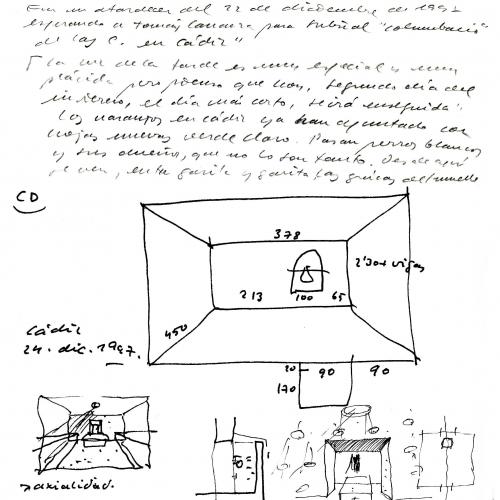 En un atardecer del 22 de diciembre de 1997
esperando a Tomás para
de las C. en Cádiz"
"La luz de la tarde es muy especial y muy
plácida pero pienso que hoy, segundo día del
invierno, el día más corto, será enseguida".
Los naranjos en Cádiz ya han apuntado con
hojas nuevas verde claro. Pasan perros blancos
y sus dueños, que no lo son tanto. Desde aquí
se ven, entre garita y garita las grúas del muelle
CD
378
2'30+vigas
213 100 65
450
Cádiz
24. dic. 1997.
20 90 90
170
axialidad.